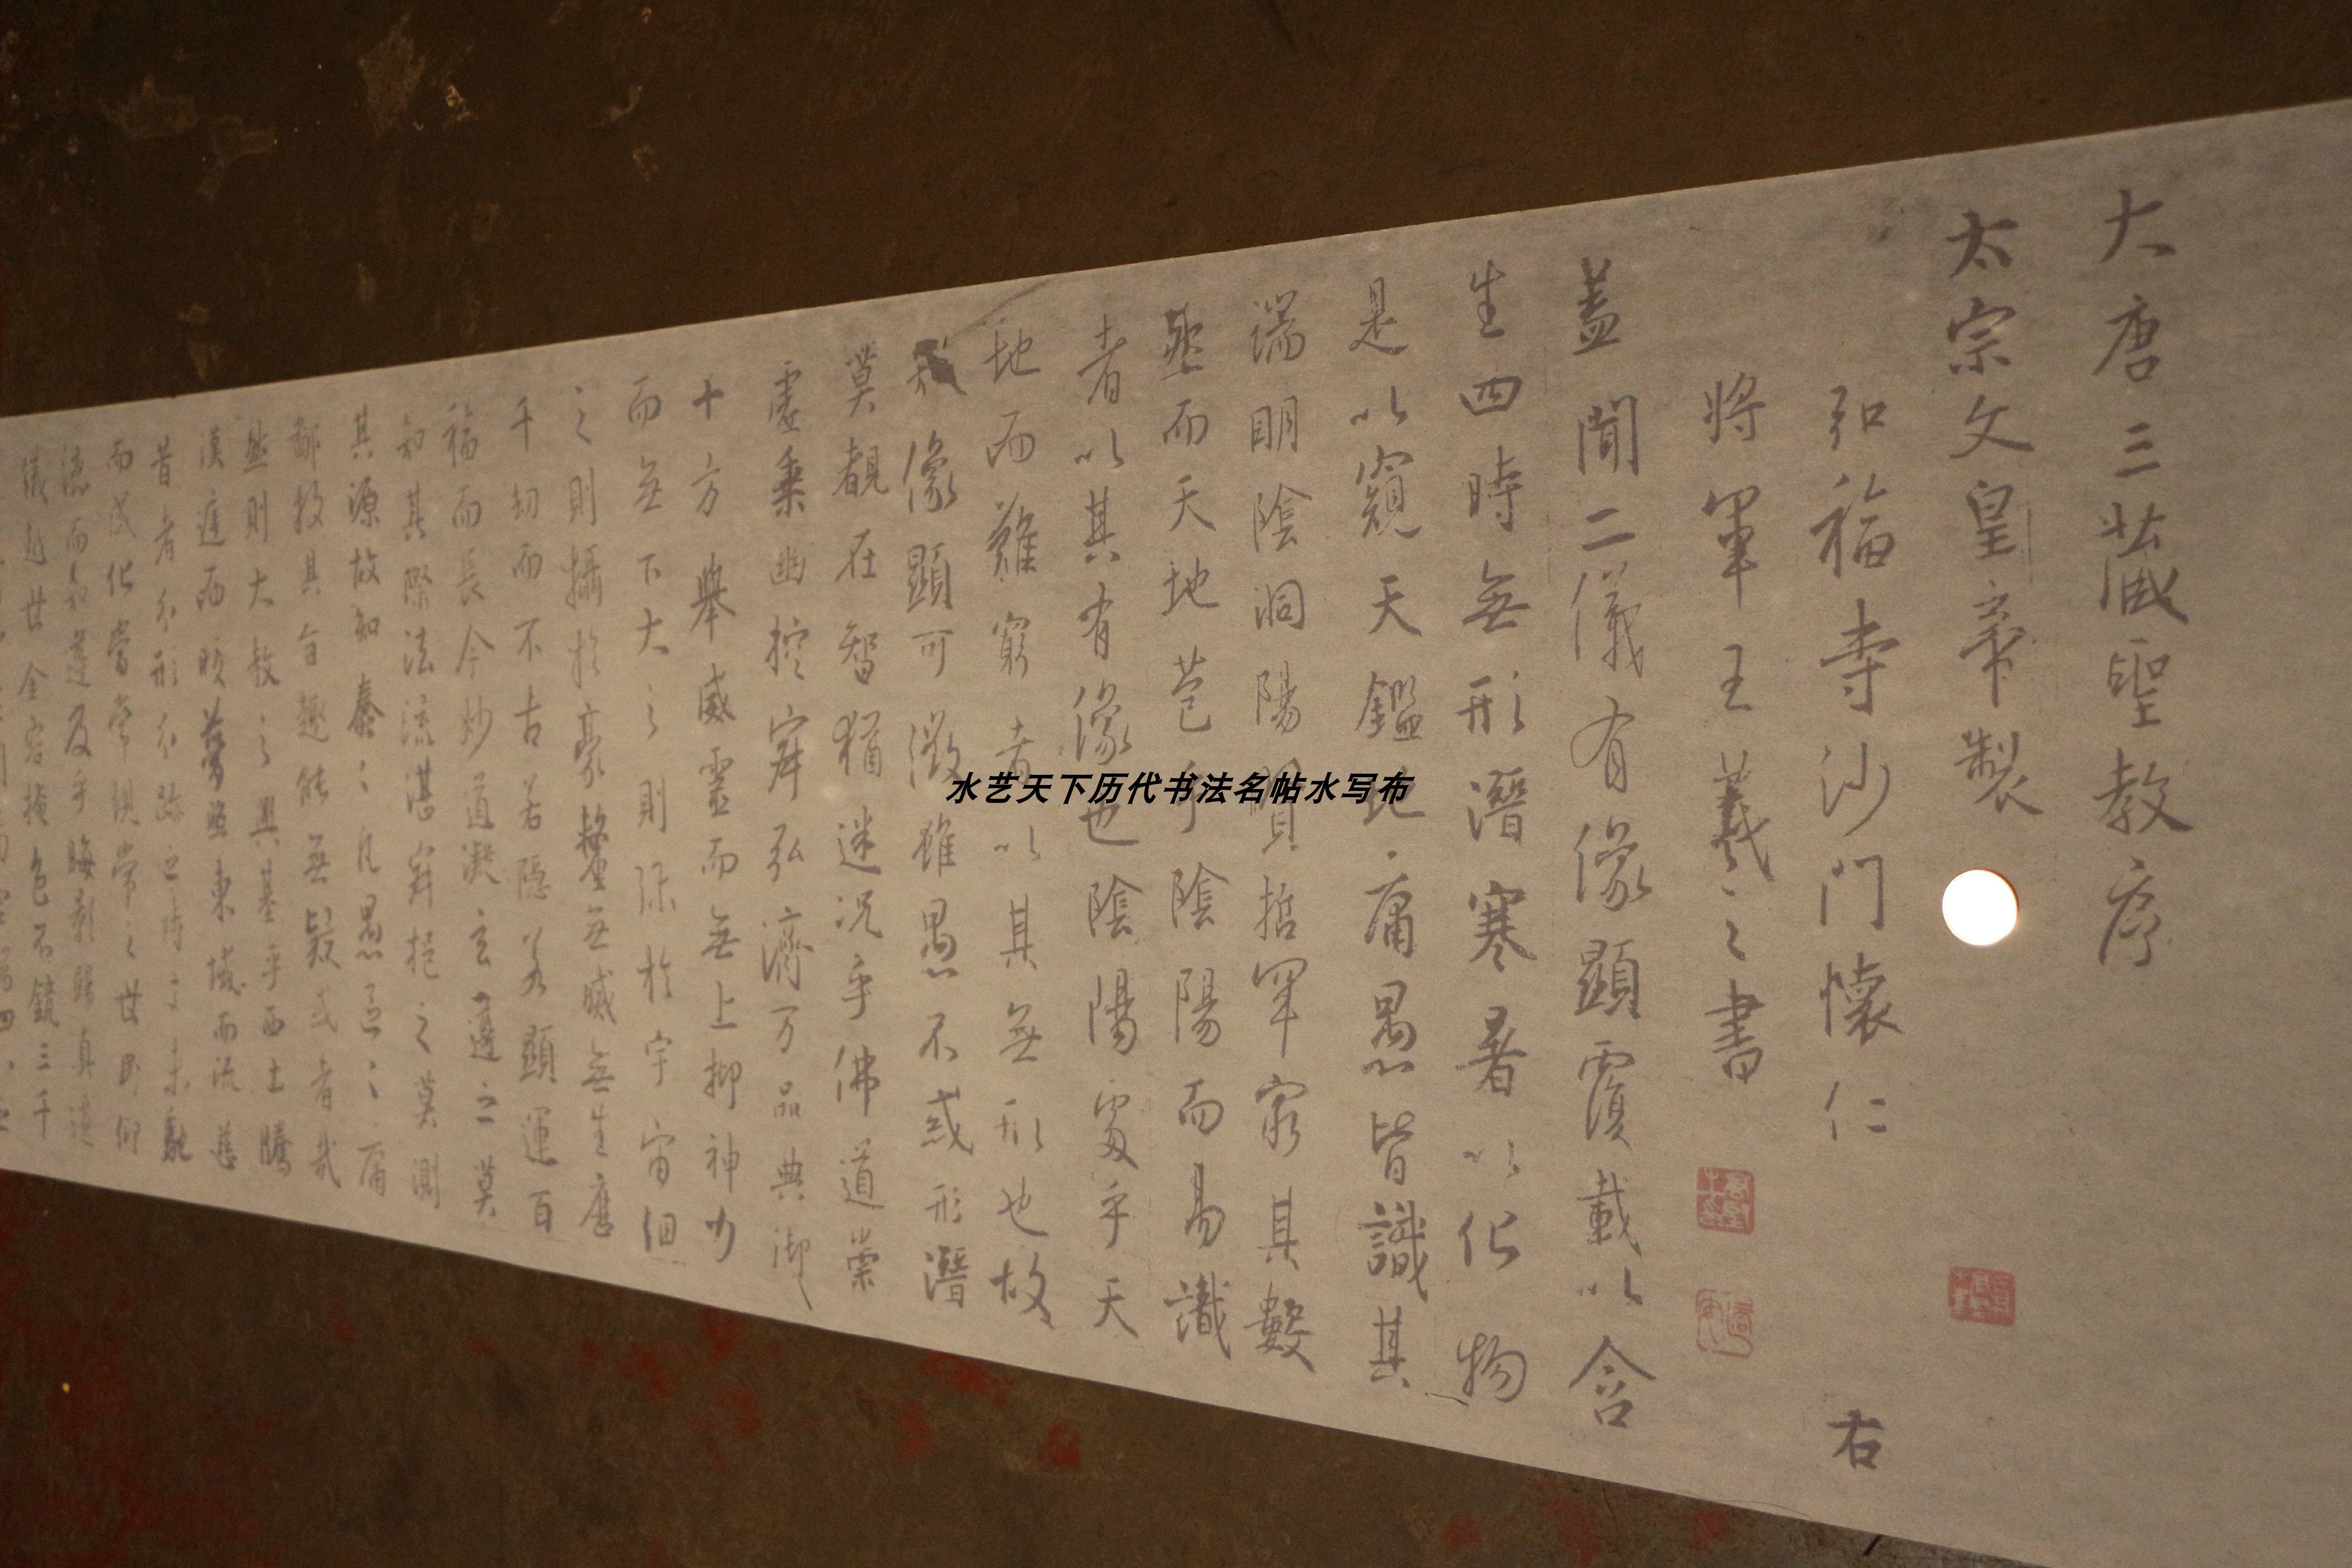 大唐三藏聖教序
太宗文皇帝製
弘福寺沙門懷仁 右
將軍王羲之書
蓋聞二儀有像顯覆載以含
生四時無形潛寒暑以化物
是以窺天鑑地庸愚皆識其
端明陰洞陽賢哲罕窮其數
然而天地苞乎陰陽而易識
者以其有像也陰陽處乎天
地而難窮者以其無形也故
知像顯可徵雖愚不惑形潛
莫覩在智猶迷況乎佛道崇
虛乘幽控寂弘濟万品典御
十方舉威靈而無上抑神力
而無下大之則彌於宇宙細
之則攝於豪釐無滅無生歷
千劫而不古若隱若顯運百
福而長今妙道凝玄遵之莫
知其際法流湛寂挹之莫測
其源故知蠢〻凡愚區〻庸
鄙投其旨趣能無疑或者哉
然則大教之興基乎西土騰
漢庭而皎夢照東域而流慈
昔者分形分跡之時言未馳
而成化當常現常之世民仰
德而知遵及乎晦影歸真遷
儀越世金容掩色不鏡三千
水艺天下历代书法名帖水写布